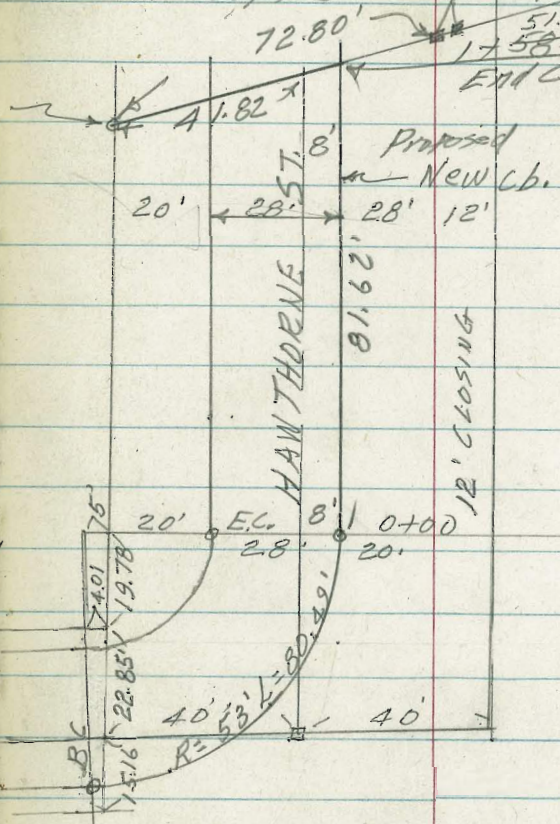 72.80'
51.
1+58
End C
41.82
8'
Proposed
New Cb.
20'
28'
28'
12'
HAWTHORNE ST.
81.62'
12' CLOSING
.75'
20'
E.C.
8'
0+00
28'
20'
4.01
19.78'
22.85'
40'
R=53'
L=80.49'
40'
BC
15.16'